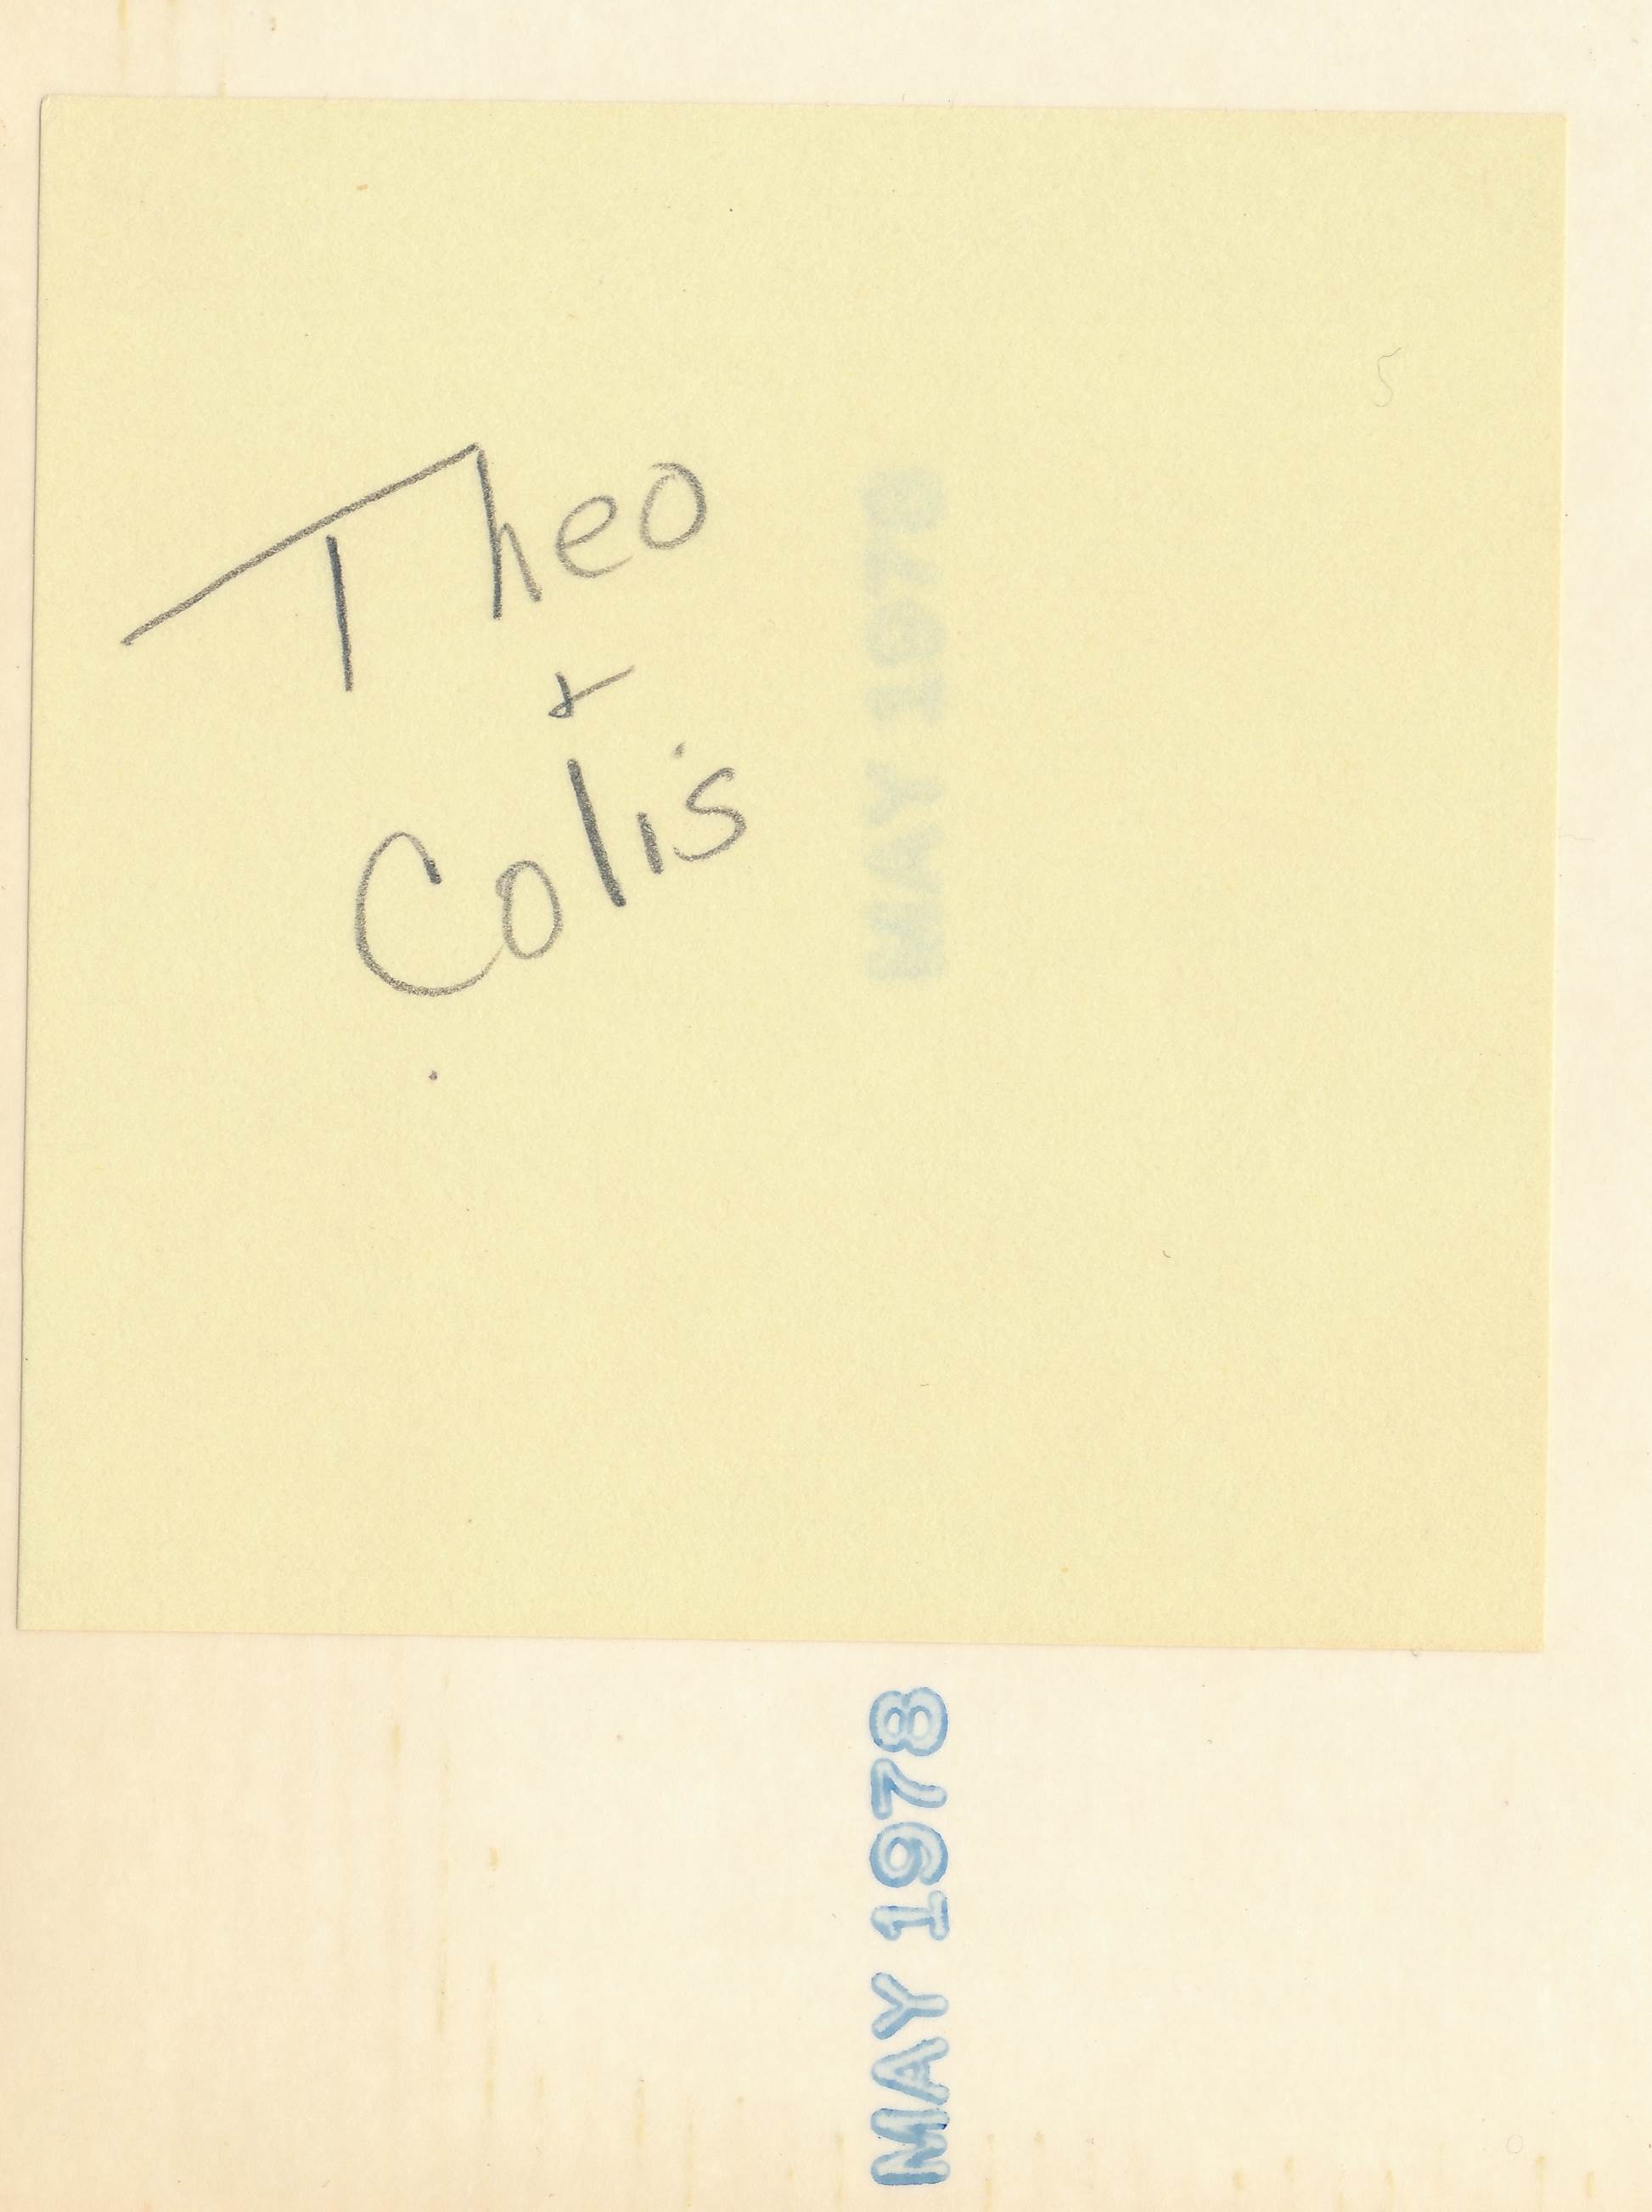 Theo
+
Colis
MAY 1978
MAY 1978